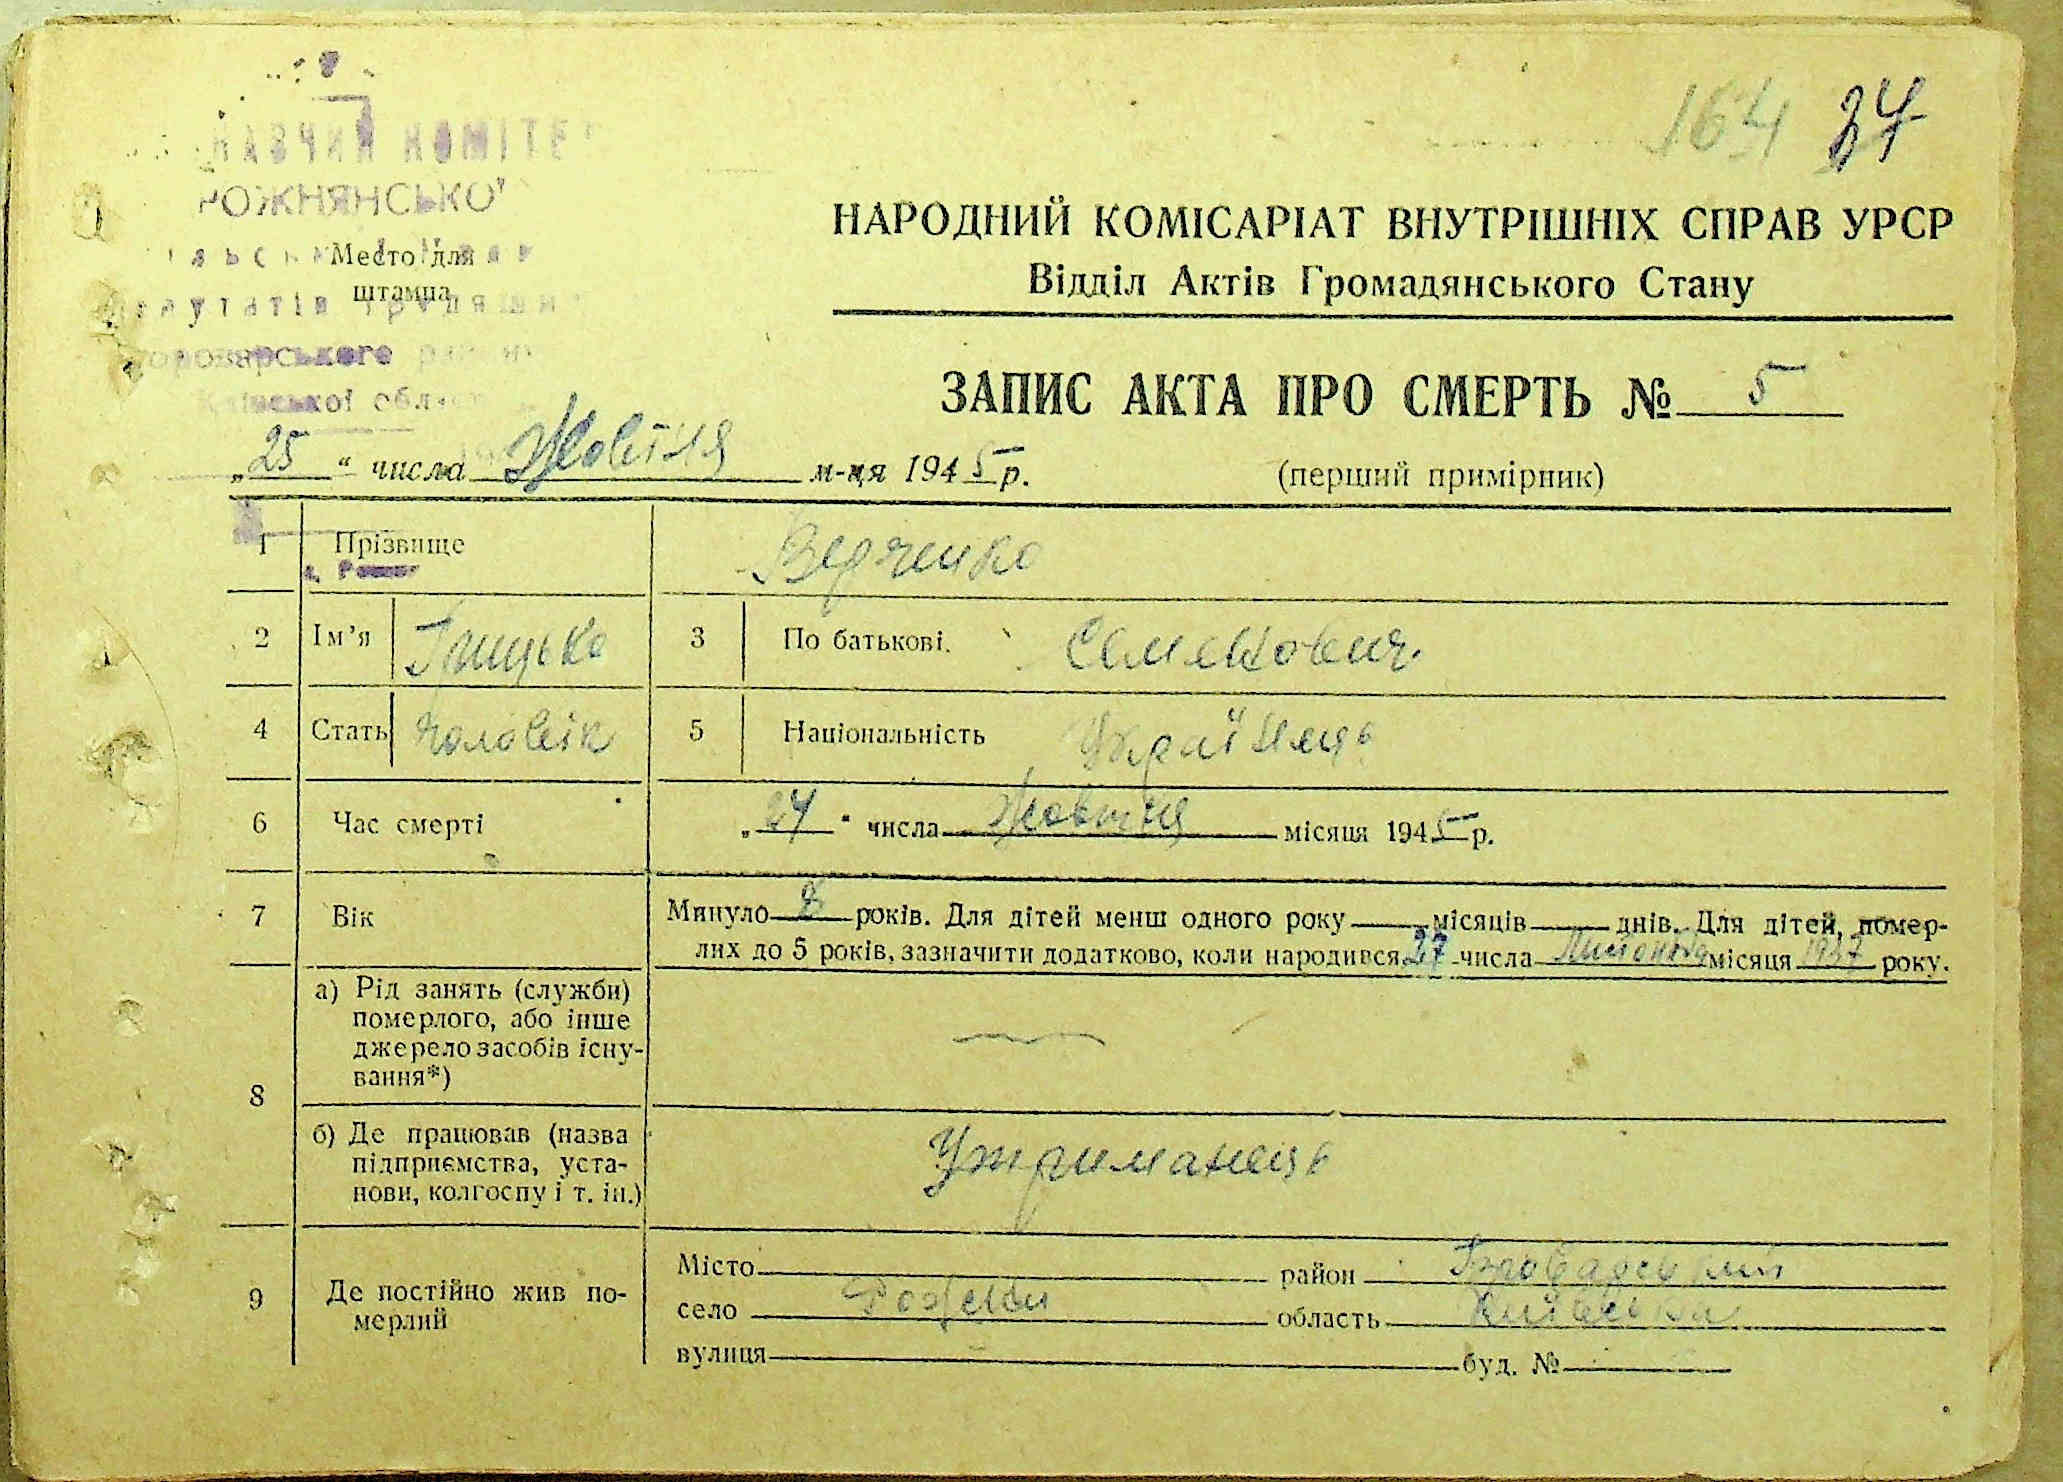 164 24
НАВЧИЙ КОМІТЕ
РОЖНЯНСЬКОЇ
Место для
штампа
депутатів трудящих
Броварського району
Київської області
НАРОДНИЙ КОМІСАРІАТ ВНУТРІШНІХ СПРАВ УРСР
Відділ Актів Громадянського Стану
ЗАПИС АКТА ПРО СМЕРТЬ № 5
„25“ числа Жовтня м-ця 1945 р.
(перший примірник)
1 Прізвище Ведченко
2 Ім’я Грицько 3 По батькові. Семенович.
4 Стать чоловік 5 Національність Українець
6 Час смерті „24“ числа Жовтня місяця 1945 р.
7 Вік Минуло 8 років. Для дітей менш одного року місяців днів. Для дітей, помер-
лих до 5 років, зазначити додатково, коли народився 27 числа місяця 1937 року.
8 а) Рід занять (служби)
померлого, або інше
джерело засобів існу-
вання*)
б) Де працював (назва
підприємства, уста-
нови, колгоспу і т. ін.) Утриманець
9 Де постійно жив по-
мерлий
Місто район Броварський
село Рожни область Київська
вулиця буд. №